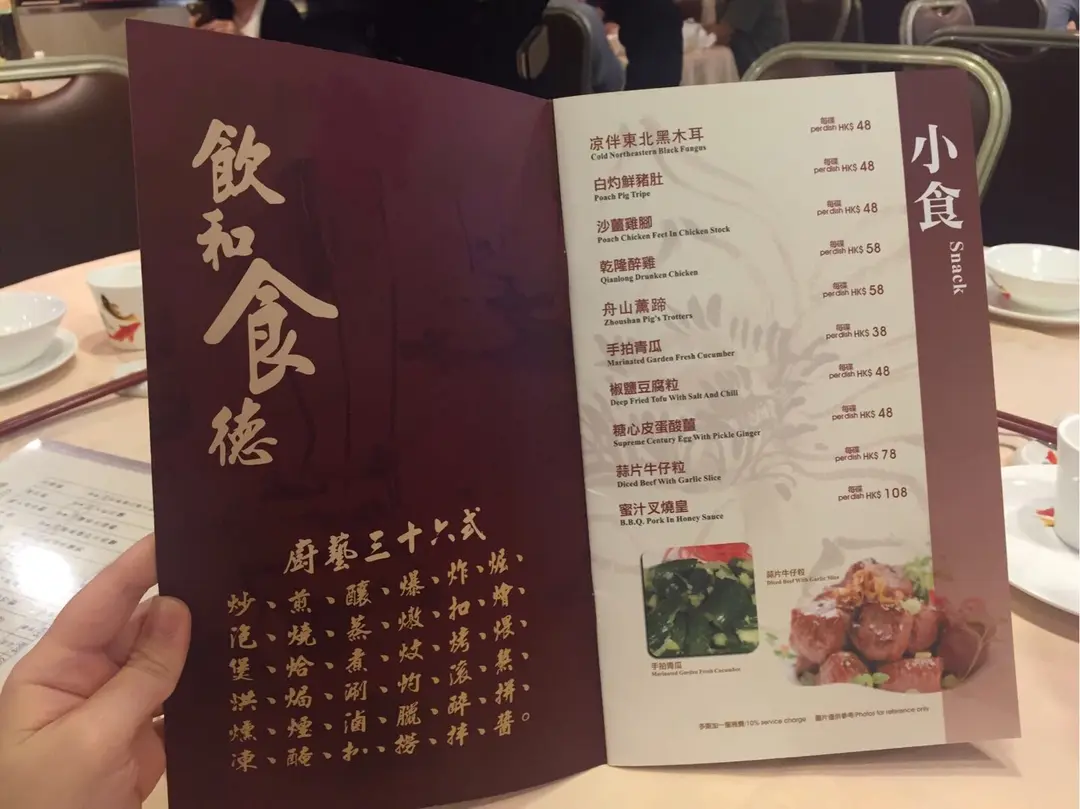 飲和食德
廚藝三十六式
炒、煎、釀、爆、炸、
泡、燒、蒸、燉、扣、燴、
堡、烚、煮、炆、烤、煨、
烘、焗、涮、灼、滾、
燻、煙、滷、臘、醉、拼、
凍、醃、扒、撈、拌、醬。
小食
Snack
凉伴東北黑木耳 每碟
Cold Northeastern Black Fungus per dish HK$ 48
白灼鮮豬肚 每碟
Poach Pig Tripe per dish HK$ 48
沙薑雞腳 每碟
Poach Chicken Feet In Chicken Stock per dish HK$ 48
乾隆醉雞 每碟
Qianlong Drunken Chicken per dish HK$ 58
舟山薰蹄 每碟
Zhoushan Pig's Trotters per dish HK$ 58
手拍青瓜 每碟
Marinated Garden Fresh Cucumber per dish HK$ 38
椒鹽豆腐粒 每碟
Deep Fried Tofu With Salt And Chill per dish HK$ 48
糖心皮蛋酸薑 每碟
Supreme Century Egg With Pickle Ginger per dish HK$ 48
蒜片牛仔粒 每碟
Diced Beef With Garlic Slice per dish HK$ 78
蜜汁叉燒皇 每碟
B.B.Q. Pork In Honey Sauce per dish HK$ 108
蒜片牛仔粒
Diced Beef With Garlic Slice
手拍青瓜
Marinated Garden Fresh Cucumber
多謝加一服務費/10% service charge 圖片僅供參考/Photos for reference only